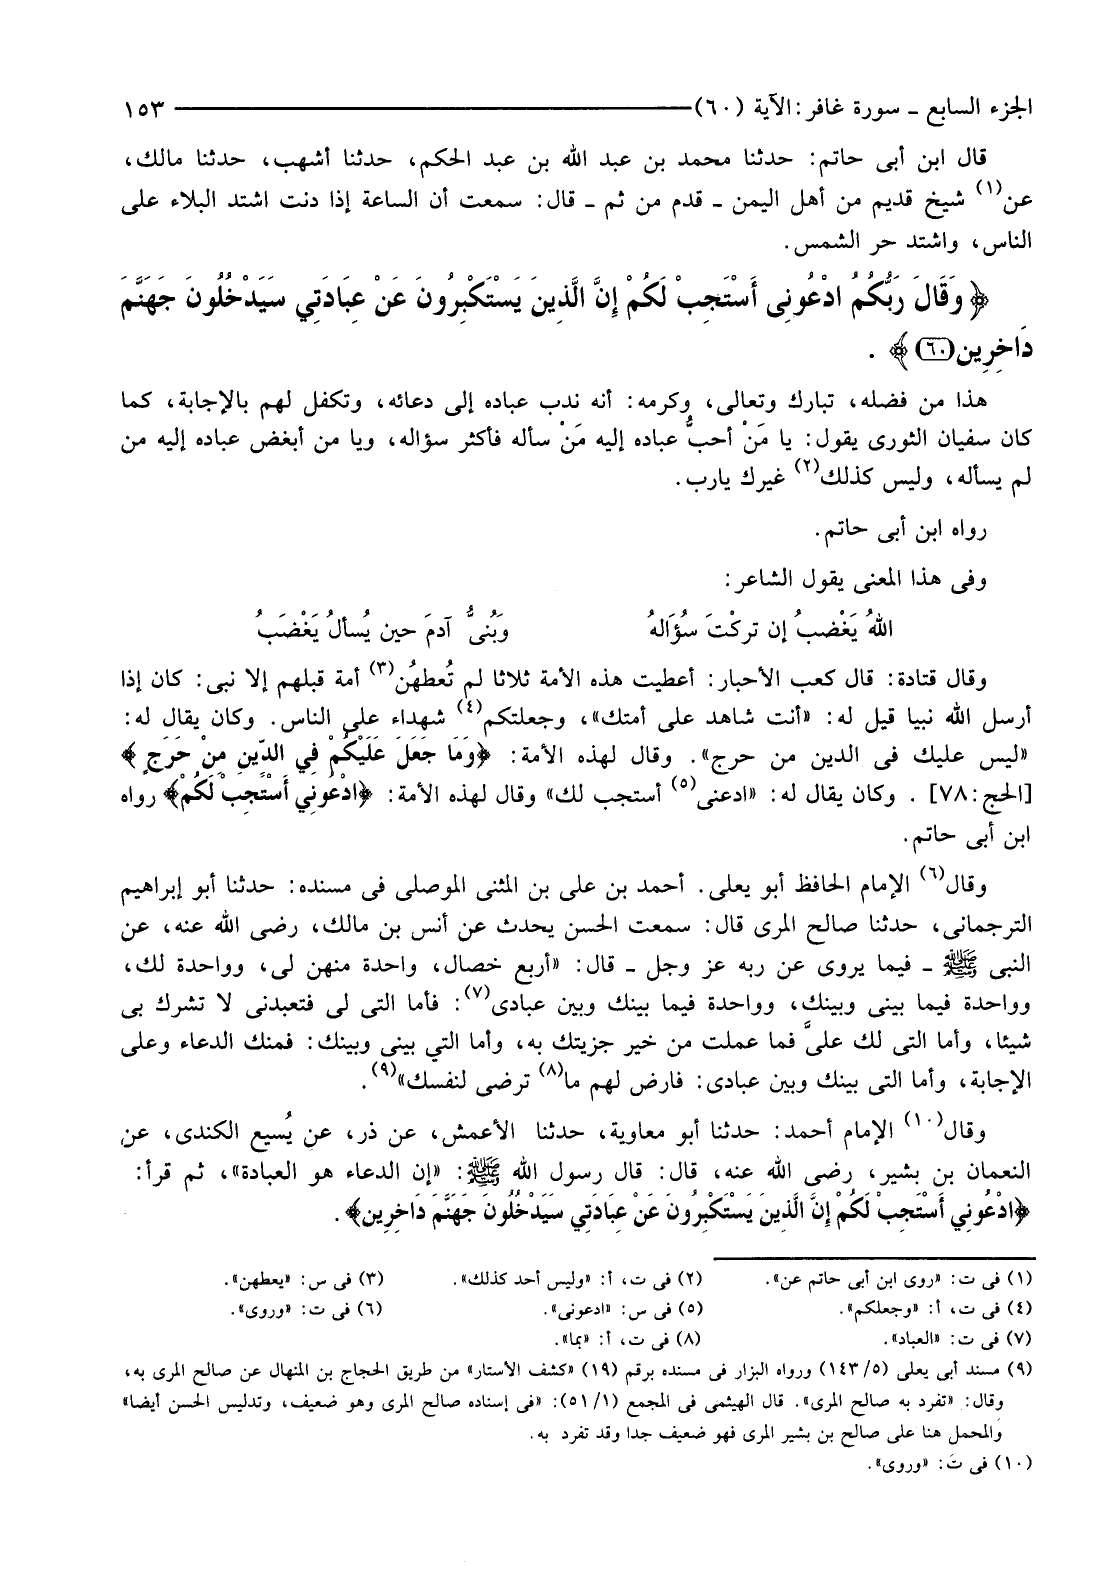 الجزء السابع ـ سورة غافر : الآية (٦٠) ١٥٣
قال ابن أبى حاتم: حدثنا محمد بن عبد الله بن عبد الحكم، حدثنا أشهب، حدثنا مالك،
عن(١) شيخ قديم من أهل اليمن ـ قدم من ثم ـ قال: سمعت أن الساعة إذا دنت اشتد البلاء على
الناس، واشتد حر الشمس.
﴿ وَقَالَ رَبُّكُمُ ادْعُونِى أَسْتَجِبْ لَكُمْ إِنَّ الَّذِينَ يَسْتَكْبِرُونَ عَنْ عِبَادَتِي سَيَدْخُلُونَ جَهَنَّمَ
دَاخِرِين (٦٠) ﴾ .
هذا من فضله، تبارك وتعالى، وكرمه: أنه ندب عباده إلى دعائه، وتكفل لهم بالإجابة، كما
كان سفيان الثورى يقول: يا مَنْ أحبُّ عباده إليه مَنْ سأله فأكثر سؤاله، ويا من أبغض عباده إليه من
لم يسأله، وليس كذلك(٢) غيرك يارب.
رواه ابن أبى حاتم.
وفى هذا المعنى يقول الشاعر:
اللهُ يَغْضبُ إن تركْتَ سؤَالهُ وَبُنىُّ آدمَ حين يُسألُ يَغْضَبُ
وقال قتادة: قال كعب الأحبار: أعطيت هذه الأمة ثلاثا لم تُعطهُن(٣) أمة قبلهم إلا نبى: كان إذا
أرسل الله نبيا قيل له: «أنت شاهد على أمتك»، وجعلتكم(٤) شهداء على الناس. وكان يقال له:
«ليس عليك فى الدين من حرج». وقال لهذه الأمة: ﴿وَمَا جَعَلَ عَلَيْكُمْ فِي الدِّينِ مِنْ حَرَجٍ ﴾
[الحج:٧٨] . وكان يقال له: «ادعنى(٥) أستجب لك» وقال لهذه الأمة: ﴿ادْعُونِي أَسْتَجِبْ لَكُمْ﴾ رواه
ابن أبى حاتم.
وقال(٦) الإمام الحافظ أبو يعلى. أحمد بن على بن المثنى الموصلى فى مسنده: حدثنا أبو إبراهيم
الترجمانى، حدثنا صالح المرى قال: سمعت الحسن يحدث عن أنس بن مالك، رضى الله عنه، عن
النبى ﷺ ـ فيما يروى عن ربه عز وجل ـ قال: «أربع خصال، واحدة منهن لى، وواحدة لك،
وواحدة فيما بينى وبينك، وواحدة فيما بينك وبين عبادى(٧): فأما التى لى فتعبدنى لا تشرك بى
شيئا، وأما التى لك علىَّ فما عملت من خير جزيتك به، وأما التي بينى وبينك: فمنك الدعاء وعلى
الإجابة، وأما التى بينك وبين عبادى: فارض لهم ما(٨) ترضى لنفسك»(٩).
وقال(١٠) الإمام أحمد: حدثنا أبو معاوية، حدثنا الأعمش، عن ذر، عن يُسيع الكندى، عن
النعمان بن بشير، رضى الله عنه، قال: قال رسول الله ﷺ: «إن الدعاء هو العبادة»، ثم قرأ:
﴿ادْعُونِي أَسْتَجِبْ لَكُمْ إِنَّ الَّذِينَ يَسْتَكْبِرُونَ عَنْ عِبَادَتِي سَيَدْخُلُونَ جَهَنَّمَ دَاخِرِين﴾.
(١) فى ت: «روى ابن أبى حاتم عن». (٢) فى ت، أ: «وليس أحد كذلك». (٣) فى س: «يعطهن».
(٤) فى ت، أ: «وجعلكم». (٥) فى س: «ادعونى». (٦) فى ت: «وروى».
(٧) فى ت: «العباد». (٨) فى ت، أ: «بما».
(٩) مسند أبى يعلى (١٤٣/٥) ورواه البزار فى مسنده برقم (١٩) «كشف الأستار» من طريق الحجاج بن المنهال عن صالح المرى به،
وقال: «تفرد به صالح المرى». قال الهيثمى فى المجمع (٥١/١): «فى إسناده صالح المرى وهو ضعيف، وتدليس الحسن أيضا»
والمحمل هنا على صالح بن بشير المرى فهو ضعيف جدا وقد تفرد به.
(١٠) فى ت: «وروى».